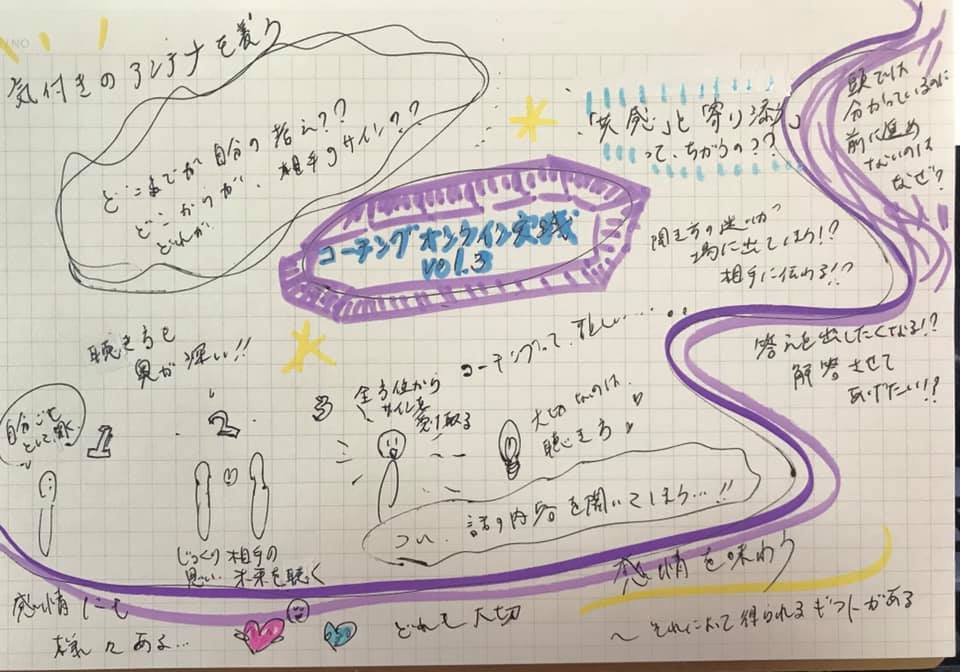 気付きのアンテナを養う
どこまでが自分の考え??
どこからが、相手のサイン??
どれが
「共感」と「寄り添え」
って、ちがうの??
頭では
分かっているのに
前に進め
ないのは
なぜ?
コーチングオンライン実践
vol.3
聞き方の迷いが
場に出てしまう!?
相手に伝わる!?
答えを出したくなる!?
解答させて
あげたい!?
聴き方も
奥が深い!!
コーチングって、難しい……
自分ごと
として聴く
1
2
3
全方位から
サインを
受け取る
大切なのは、
聴き方
つい、話の内容を聞いてしまう…!!
じっくり相手の
思い、未来を聴く
感情を味わう
〜それによって得られるギフトがある
感情にも
様々ある…
どれも大切